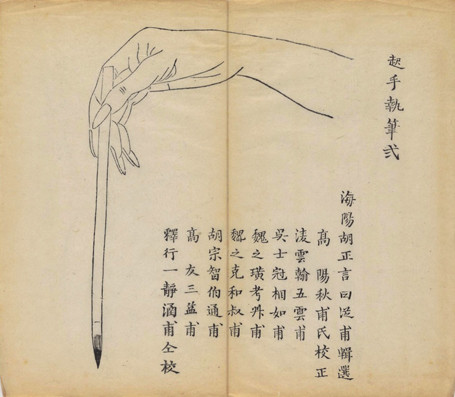 起手執筆式
海陽胡正言曰從甫輯選
高陽秋甫氏校正
淩雲翰五雲甫
吳士冠相如甫
魏之璜考叔甫
魏之克和叔甫
胡宗智伯通甫
高友三益甫
釋行一靜涵甫仝校